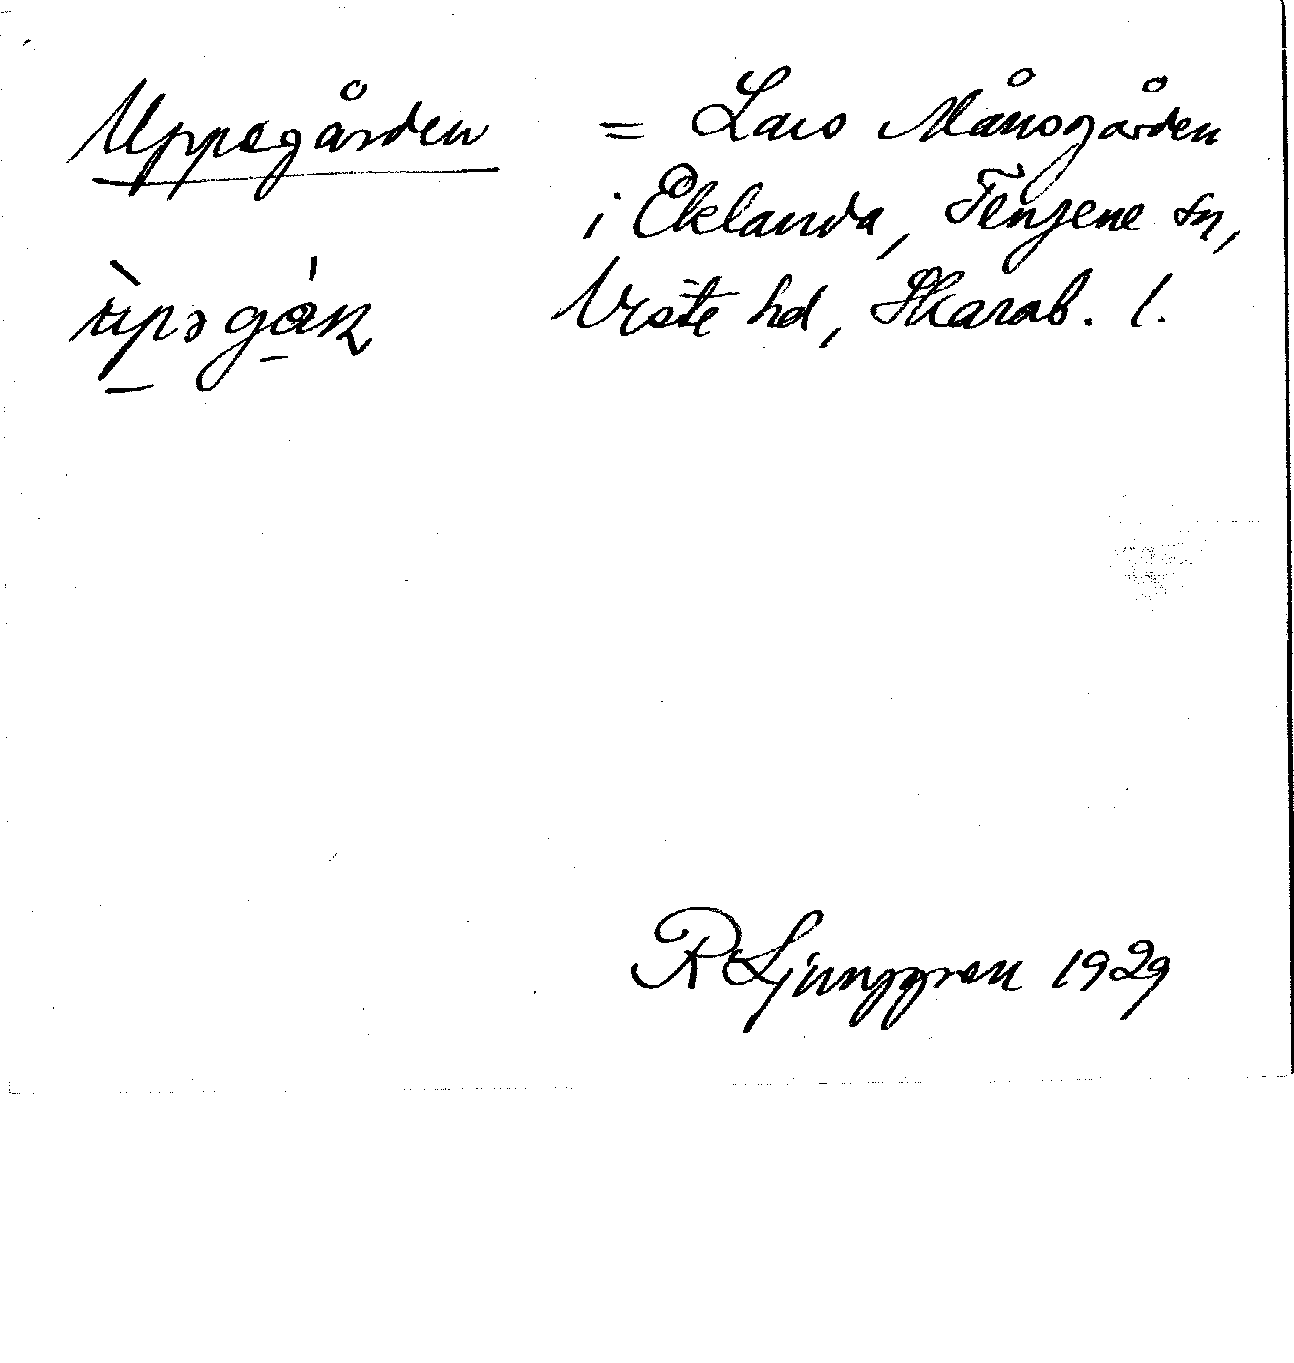 Uppegården = Lars Månsgården
i Eklanda, Tengene sn,
Viste hd, Skarab. l.
R Ljunggren 1929